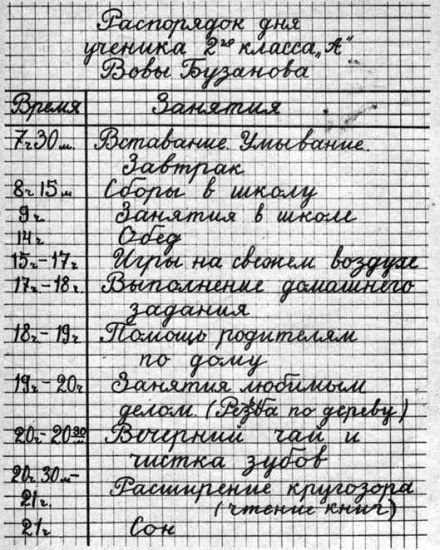 Распорядок дня
ученика 2го класса „А"
Вовы Бузанова
Время Занятия
7ч30м. Вставание. Умывание.
Завтрак
8ч15м Сборы в школу
9ч. Занятия в школе
14ч. Обед
15ч-17ч Игры на свежем воздухе
17ч-18ч. Выполнение домашнего
задания
18ч-19ч Помощь родителям
по дому
19ч-20ч Занятия любимым
делом. (Резьба по дереву)
20ч-20 30м Вечерний чай и
чистка зубов
20ч.30м-21ч. Расширение кругозора
(чтение книг)
21ч Сон